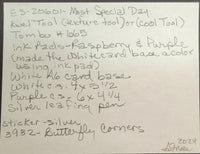 ES-200601-Most Special Day
Tool (texture tool) or (cool Tool)
Tombo #665
Ink Pads-Raspberry & Purple
(made the White card base a color
using ink pad)
White A6 card base
White c.s. 4 x 5 1/2
Purple c.s. 6 x 4 1/4
Silver leafing pen
sticker-silver
3982-Butterfly Corners
2024